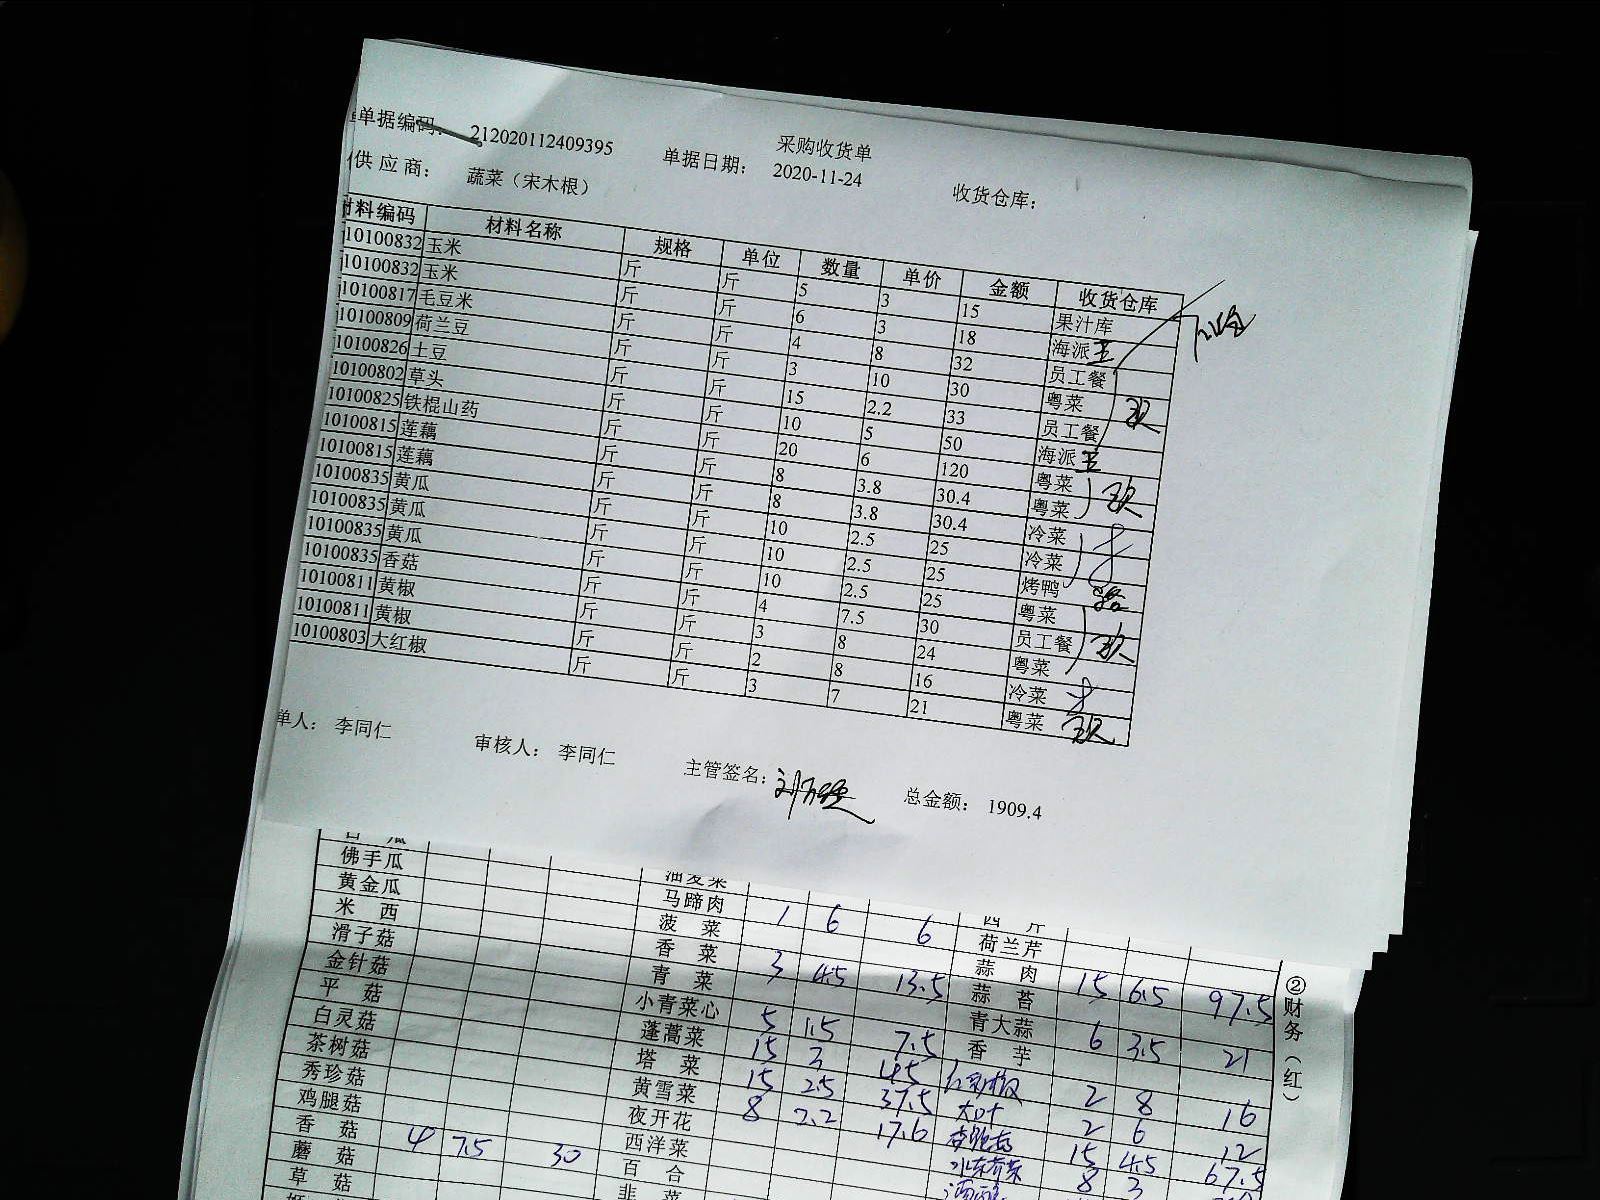 采购收货单
单据编码： 212020112409395 单据日期： 2020-11-24 收货仓库：
供应商： 蔬菜（宋木根）
材料编码 材料名称 规格 单位 数量 单价 金额 收货仓库
10100832 玉米 斤 斤 5 3 15 果汁库
10100832 玉米 斤 斤 6 3 18 海派 王
10100817 毛豆米 斤 斤 4 8 32 员工餐
10100809 荷兰豆 斤 斤 3 10 30 粤菜
10100826 土豆 斤 斤 15 2.2 33 员工餐
10100802 草头 斤 斤 10 5 50 海派 王
10100825 铁棍山药 斤 斤 20 6 120 粤菜
10100815 莲藕 斤 斤 8 3.8 30.4 粤菜
10100815 莲藕 斤 斤 8 3.8 30.4 冷菜
10100835 黄瓜 斤 斤 10 2.5 25 冷菜
10100835 黄瓜 斤 斤 10 2.5 25 烤鸭
10100835 黄瓜 斤 斤 10 2.5 25 粤菜
10100835 香菇 斤 斤 4 7.5 30 员工餐
10100811 黄椒 斤 斤 3 8 24 粤菜
10100811 黄椒 斤 斤 2 8 16 冷菜
10100803 大红椒 斤 斤 3 7 21 粤菜
单人： 李同仁 审核人： 李同仁 主管签名： 总金额： 1909.4
油麦菜 西芹
佛手瓜 马蹄肉 1 6 6 荷兰芹
黄金瓜 菠菜 蒜肉 15 6.5 97.5
米西 香菜 3 4.5 13.5 蒜苔
滑子菇 青菜 青大蒜 6 3.5 21
金针菇 小青菜心 5 1.5 7.5 香芋
平菇 蓬蒿菜 15 3 45 2 8 16
白灵菇 塔菜 15 2.5 37.5 大叶 2 6 12
茶树菇 黄雪菜 8 2.2 17.6 15 4.5 67.5
秀珍菇 夜开花 水东芥菜 8 3
鸡腿菇 西洋菜
香菇 4 7.5 30 百合
蘑菇 韭菜
草菇
②财务（红）